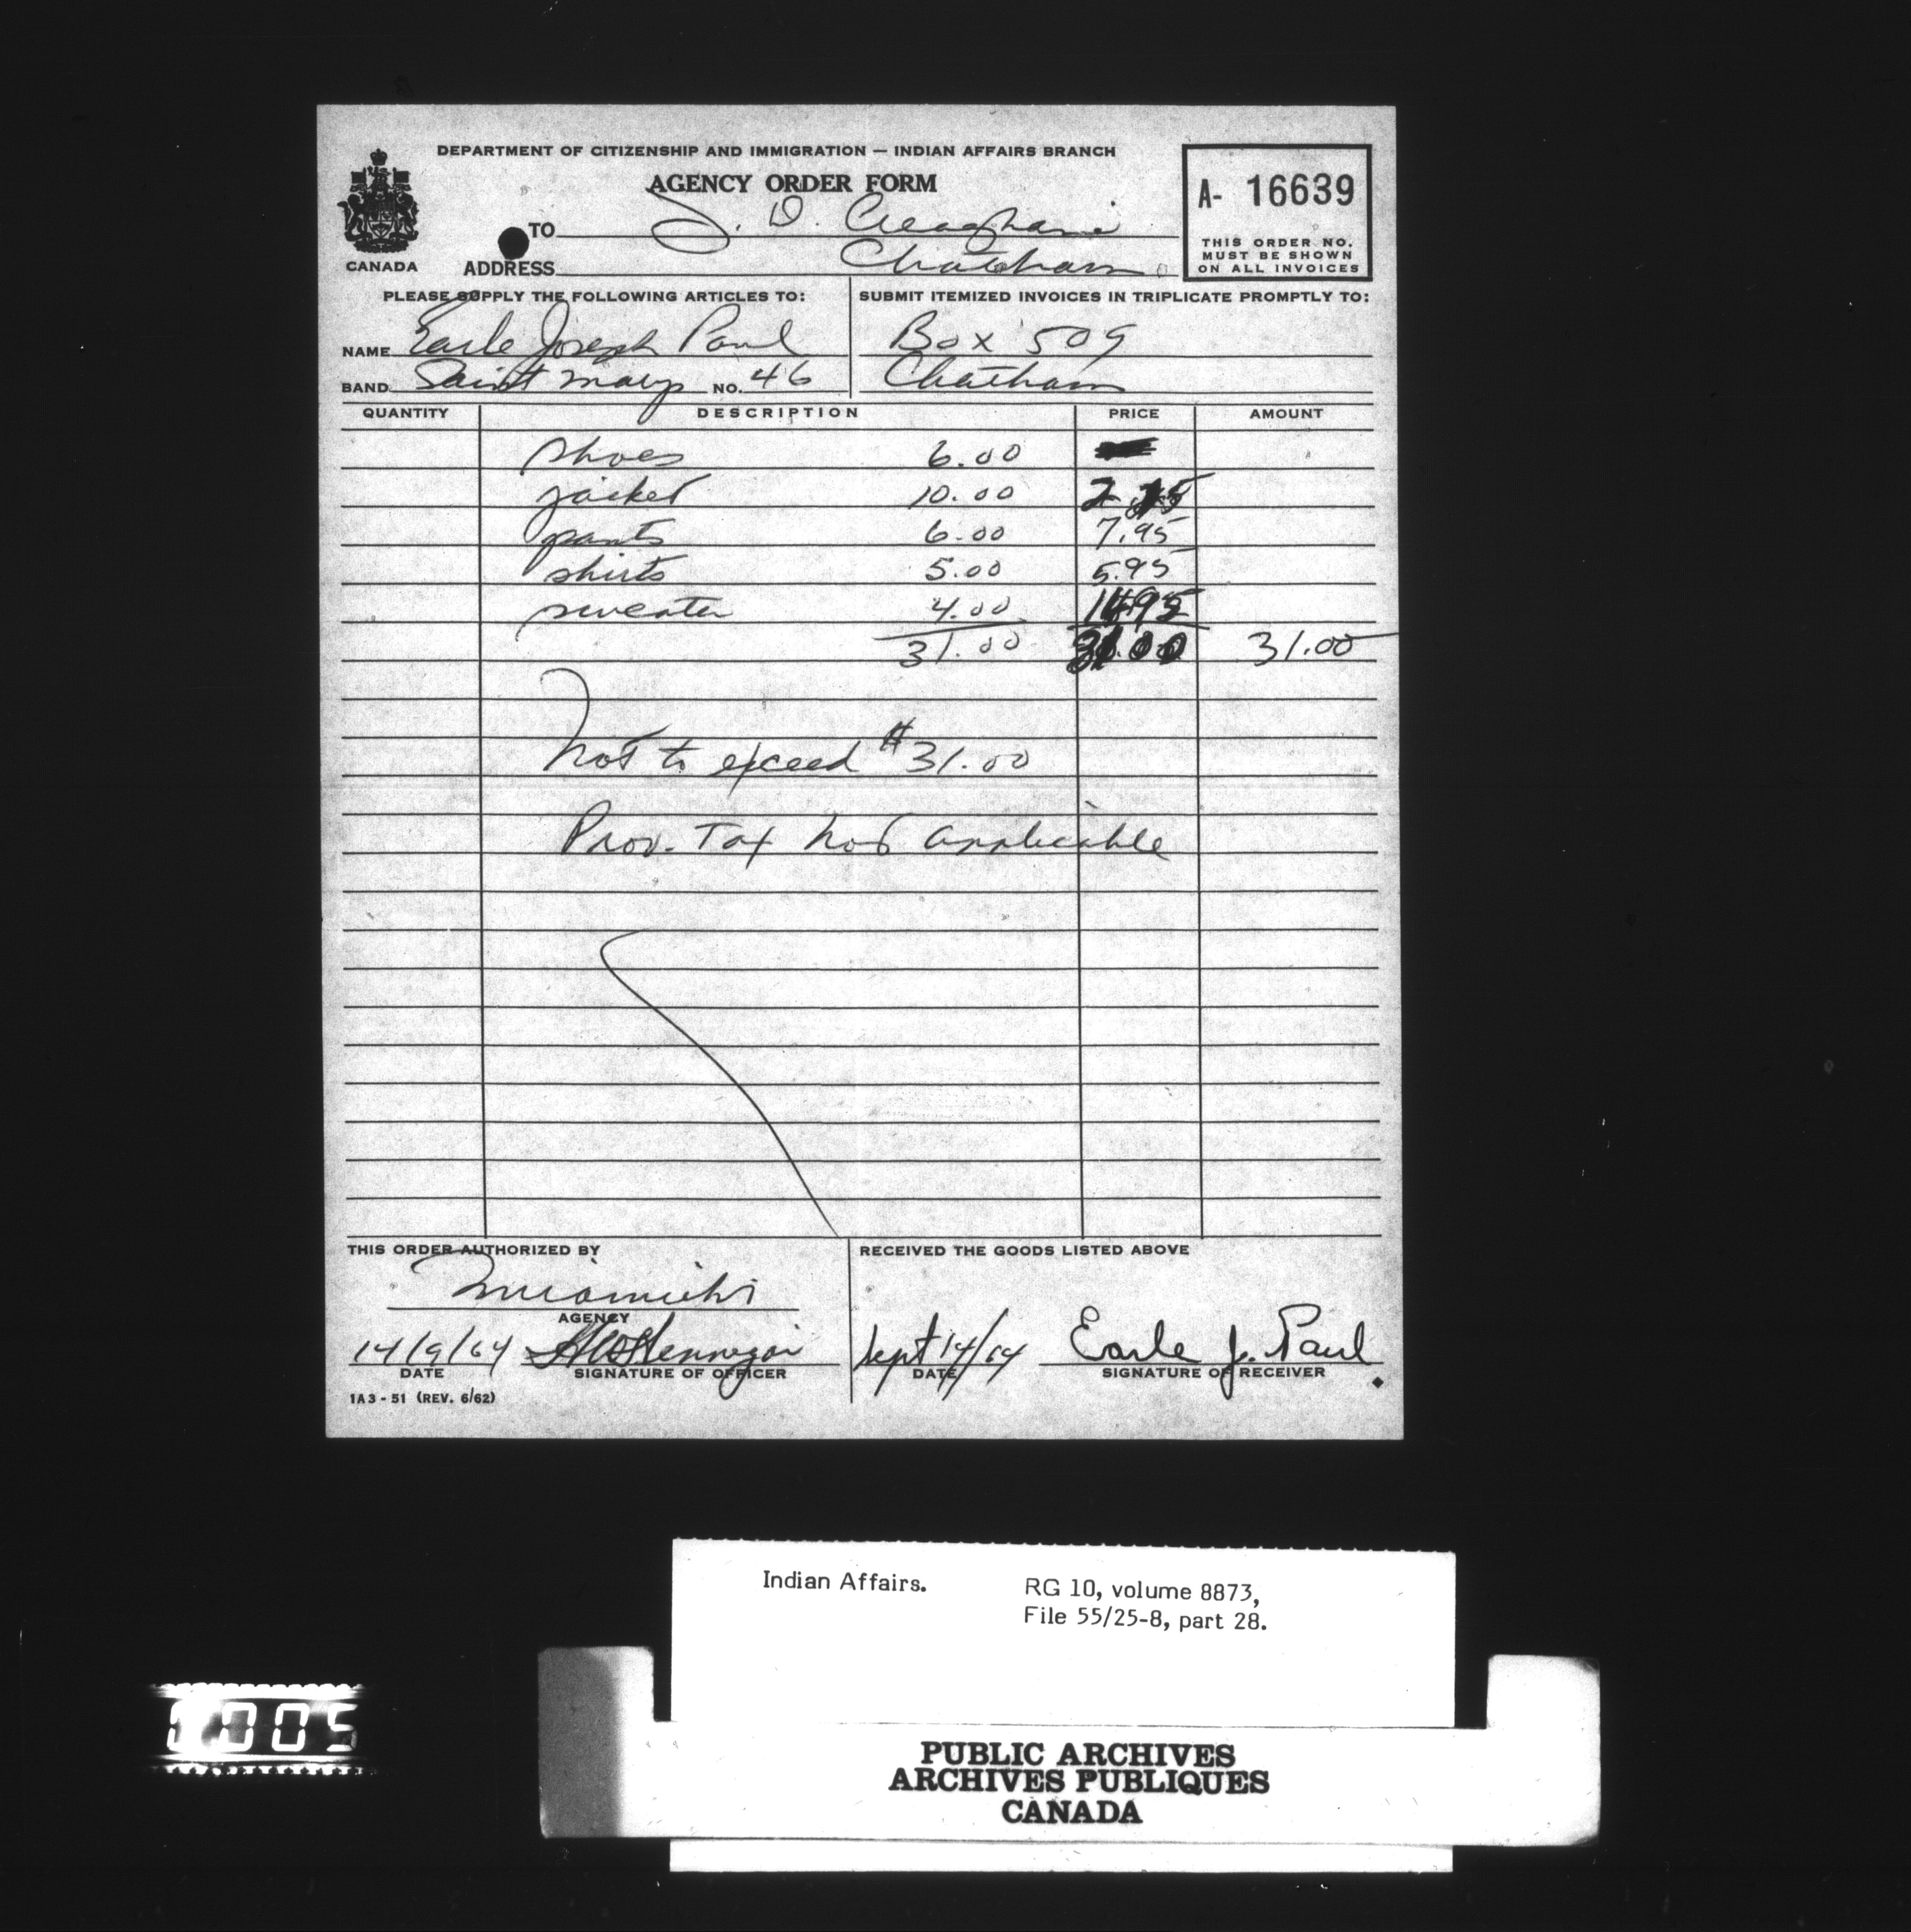 DEPARTMENT OF CITIZENSHIP AND IMMIGRATION — INDIAN AFFAIRS BRANCH
AGENCY ORDER FORM
A- 16639
THIS ORDER NO.
MUST BE SHOWN
ON ALL INVOICES
CANADA
TO J. D. Creaghan
ADDRESS Chatham
PLEASE SUPPLY THE FOLLOWING ARTICLES TO:
NAME Earle Joseph Paul
BAND Saint Marys NO. 46
SUBMIT ITEMIZED INVOICES IN TRIPLICATE PROMPTLY TO:
Box 509
Chatham
QUANTITY DESCRIPTION PRICE AMOUNT
shoes 6.00
jacket 10.00
pants 6.00 7.95
shirts 5.00 5.95
sweater 4.00 14.95
31.00 31.00 31.00
Not to exceed $31.00
Prov. Tax not applicable
THIS ORDER AUTHORIZED BY
Miramichi
AGENCY
14/9/64
DATE SIGNATURE OF OFFICER
1A3 - 51 (REV. 6/62)
RECEIVED THE GOODS LISTED ABOVE
Sept 14/64 Earle J. Paul
DATE SIGNATURE OF RECEIVER
Indian Affairs. RG 10, volume 8873,
File 55/25-8, part 28.
PUBLIC ARCHIVES
ARCHIVES PUBLIQUES
CANADA